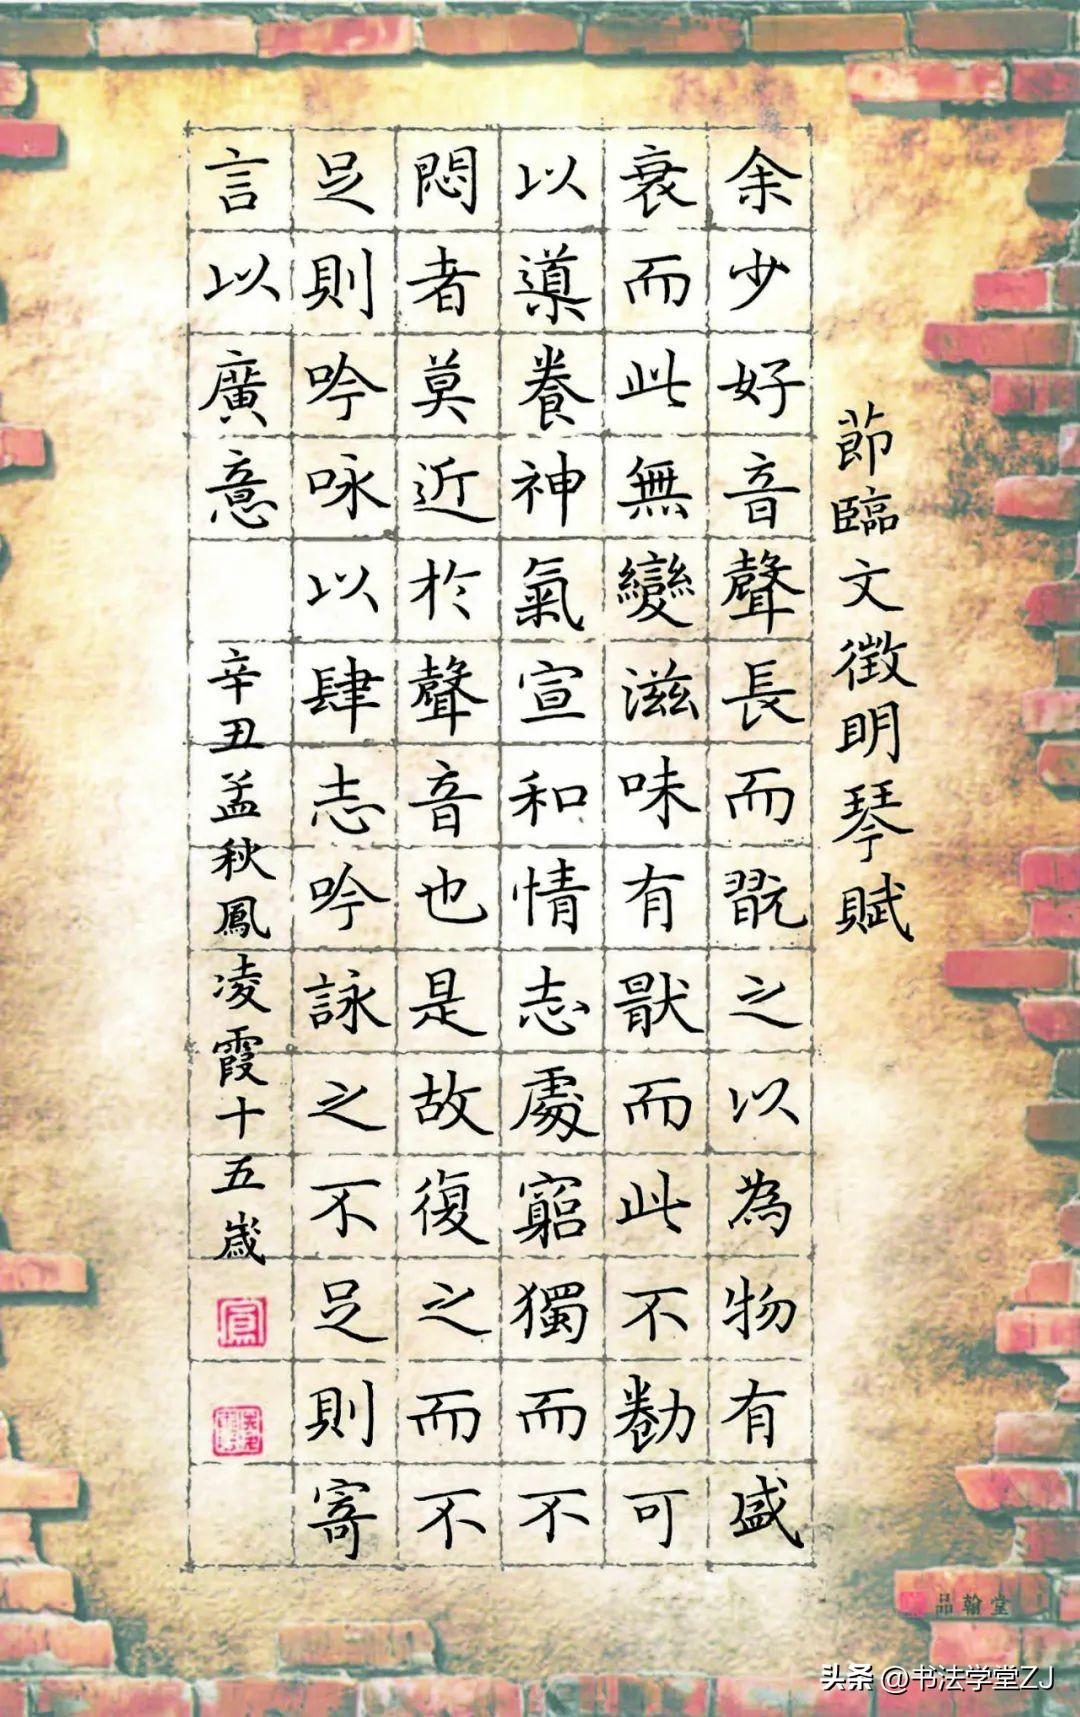 節臨文徵明琴賦
余少好音聲長而翫之以為物有盛
衰而此無變滋味有猒而此不勌可
以導養神氣宣和情志處窮獨而不
悶者莫近於聲音也是故復之而不
足則吟咏以肆志吟詠之不足則寄
言以廣意
辛丑孟秋鳳凌霞十五歲
品翰堂
头条 @书法学堂ZJ